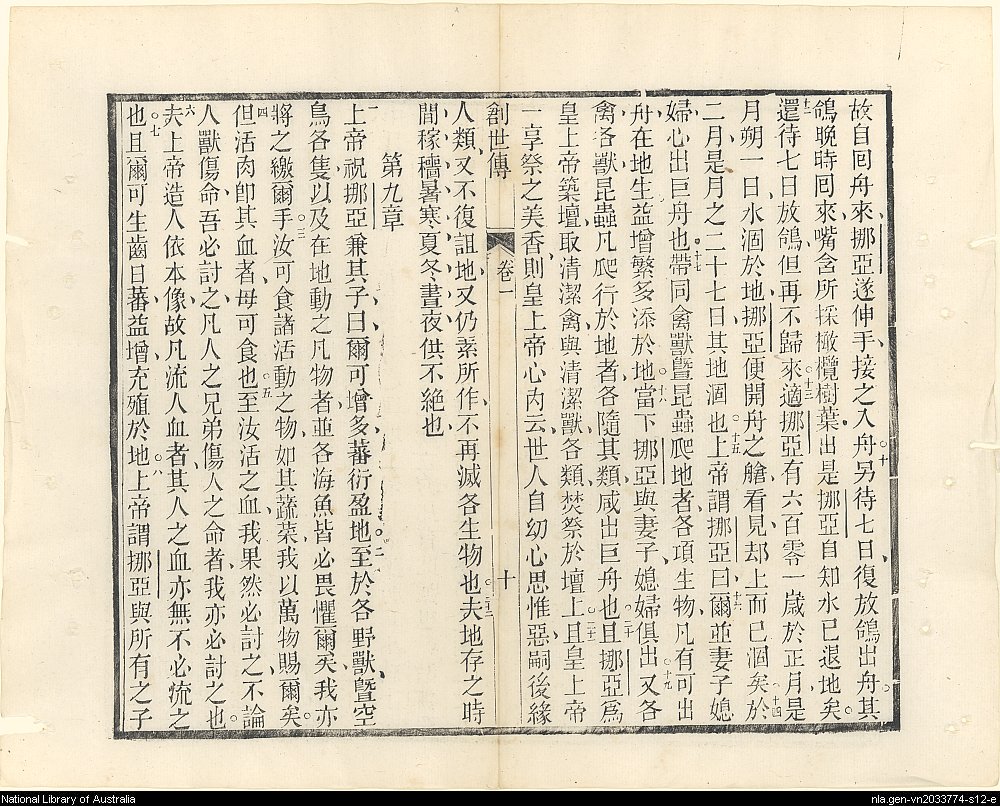 故自回舟來挪亞遂伸手接之入舟○十另待七日復放鴿出舟其
鴿晚時回來嘴含所採橄欖樹葉出是挪亞自知水已退地矣
十二還待七日放鴿但再不歸來○十三適挪亞有六百零一歲於正月是
月朔一日水涸於地挪亞便開舟之艙看見却上而已涸矣○十四於
二月是月之二十七日其地涸也○十五上帝謂挪亞曰○十六爾並妻子媳
婦心出巨舟也○十七帶同禽獸曁昆蟲爬地者各項生物凡有可出
舟在地生益增繁多添於地○十八當下挪亞與妻子媳婦俱出○十九又各
禽各獸昆蟲凡爬行於地者各隨其類咸出巨舟也○二十且挪亞爲
皇上帝築壇取清潔禽與清潔獸各類焚祭於壇上○二十一且皇上帝
一享祭之美香則皇上帝心內云世人自幼心思惟惡嗣後緣
創世傳 卷一 十
人類又不復詛地又仍素所作不再滅各生物也○二十二夫地存之時
間稼穡暑寒夏冬晝夜供不絶也
第九章
一上帝祝挪亞兼其子曰爾可增多蕃衍盈地○二至於各野獸曁空
鳥各隻以及在地動之凡物者並各海魚皆必畏懼爾矣我亦
將之繳爾手○三汝可食諸活動之物如其蔬菜我以萬物賜爾矣
四但活肉卽其血者毋可食也○五至汝活之血我果然必討之不論
人獸傷命吾必討之凡人之兄弟傷人之命者我亦必討之也
六夫上帝造人依本像故凡流人血者其人之血亦無不必流之
也○七且爾可生齒日蕃益增充殖於地○八上帝謂挪亞與所有之子
National Library of Australia
nla.gen-vn2033774-s12-e